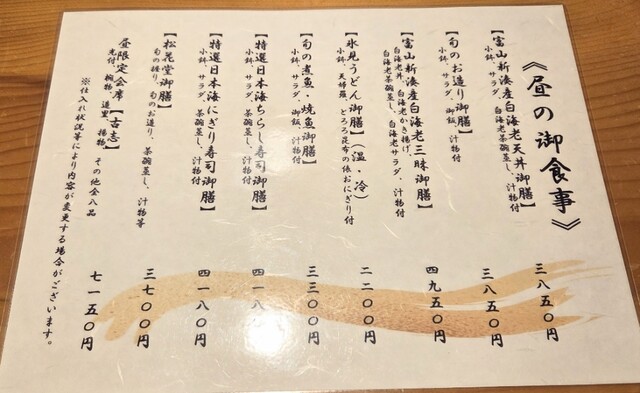 《昼の御食事》
【富山新湊産白海老天丼御膳】
小鉢、サラダ、白海老茶碗蒸し、汁物付
三八五〇円
【旬のお造り御膳】
小鉢、サラダ、御飯、汁物付
三八五〇円
【富山新湊産白海老三昧御膳】
白海老丼、白海老かき揚げ、
白海老茶碗蒸し、白海老サラダ、汁物付
四九五〇円
【氷見うどん御膳】(温・冷)
小鉢、天婦羅、とろろ昆布の俵おにぎり付
二二〇〇円
【旬の煮魚・焼魚御膳】
小鉢、サラダ、御飯、汁物付
三三〇〇円
【特選日本海ちらし寿司御膳】
小鉢、サラダ、茶碗蒸し、汁物付
四一八〇円
【特選日本海にぎり寿司御膳】
小鉢、サラダ、茶碗蒸し、汁物付
四一八〇円
【松花堂御膳】
旬の握り、旬のお造り、茶碗蒸し、汁物等
三七〇〇円
昼限定会席【古志】
先付、椀物、造里、揚物、その他全八品
七一五〇円
※仕入れ状況等により内容が変更する場合がございます。